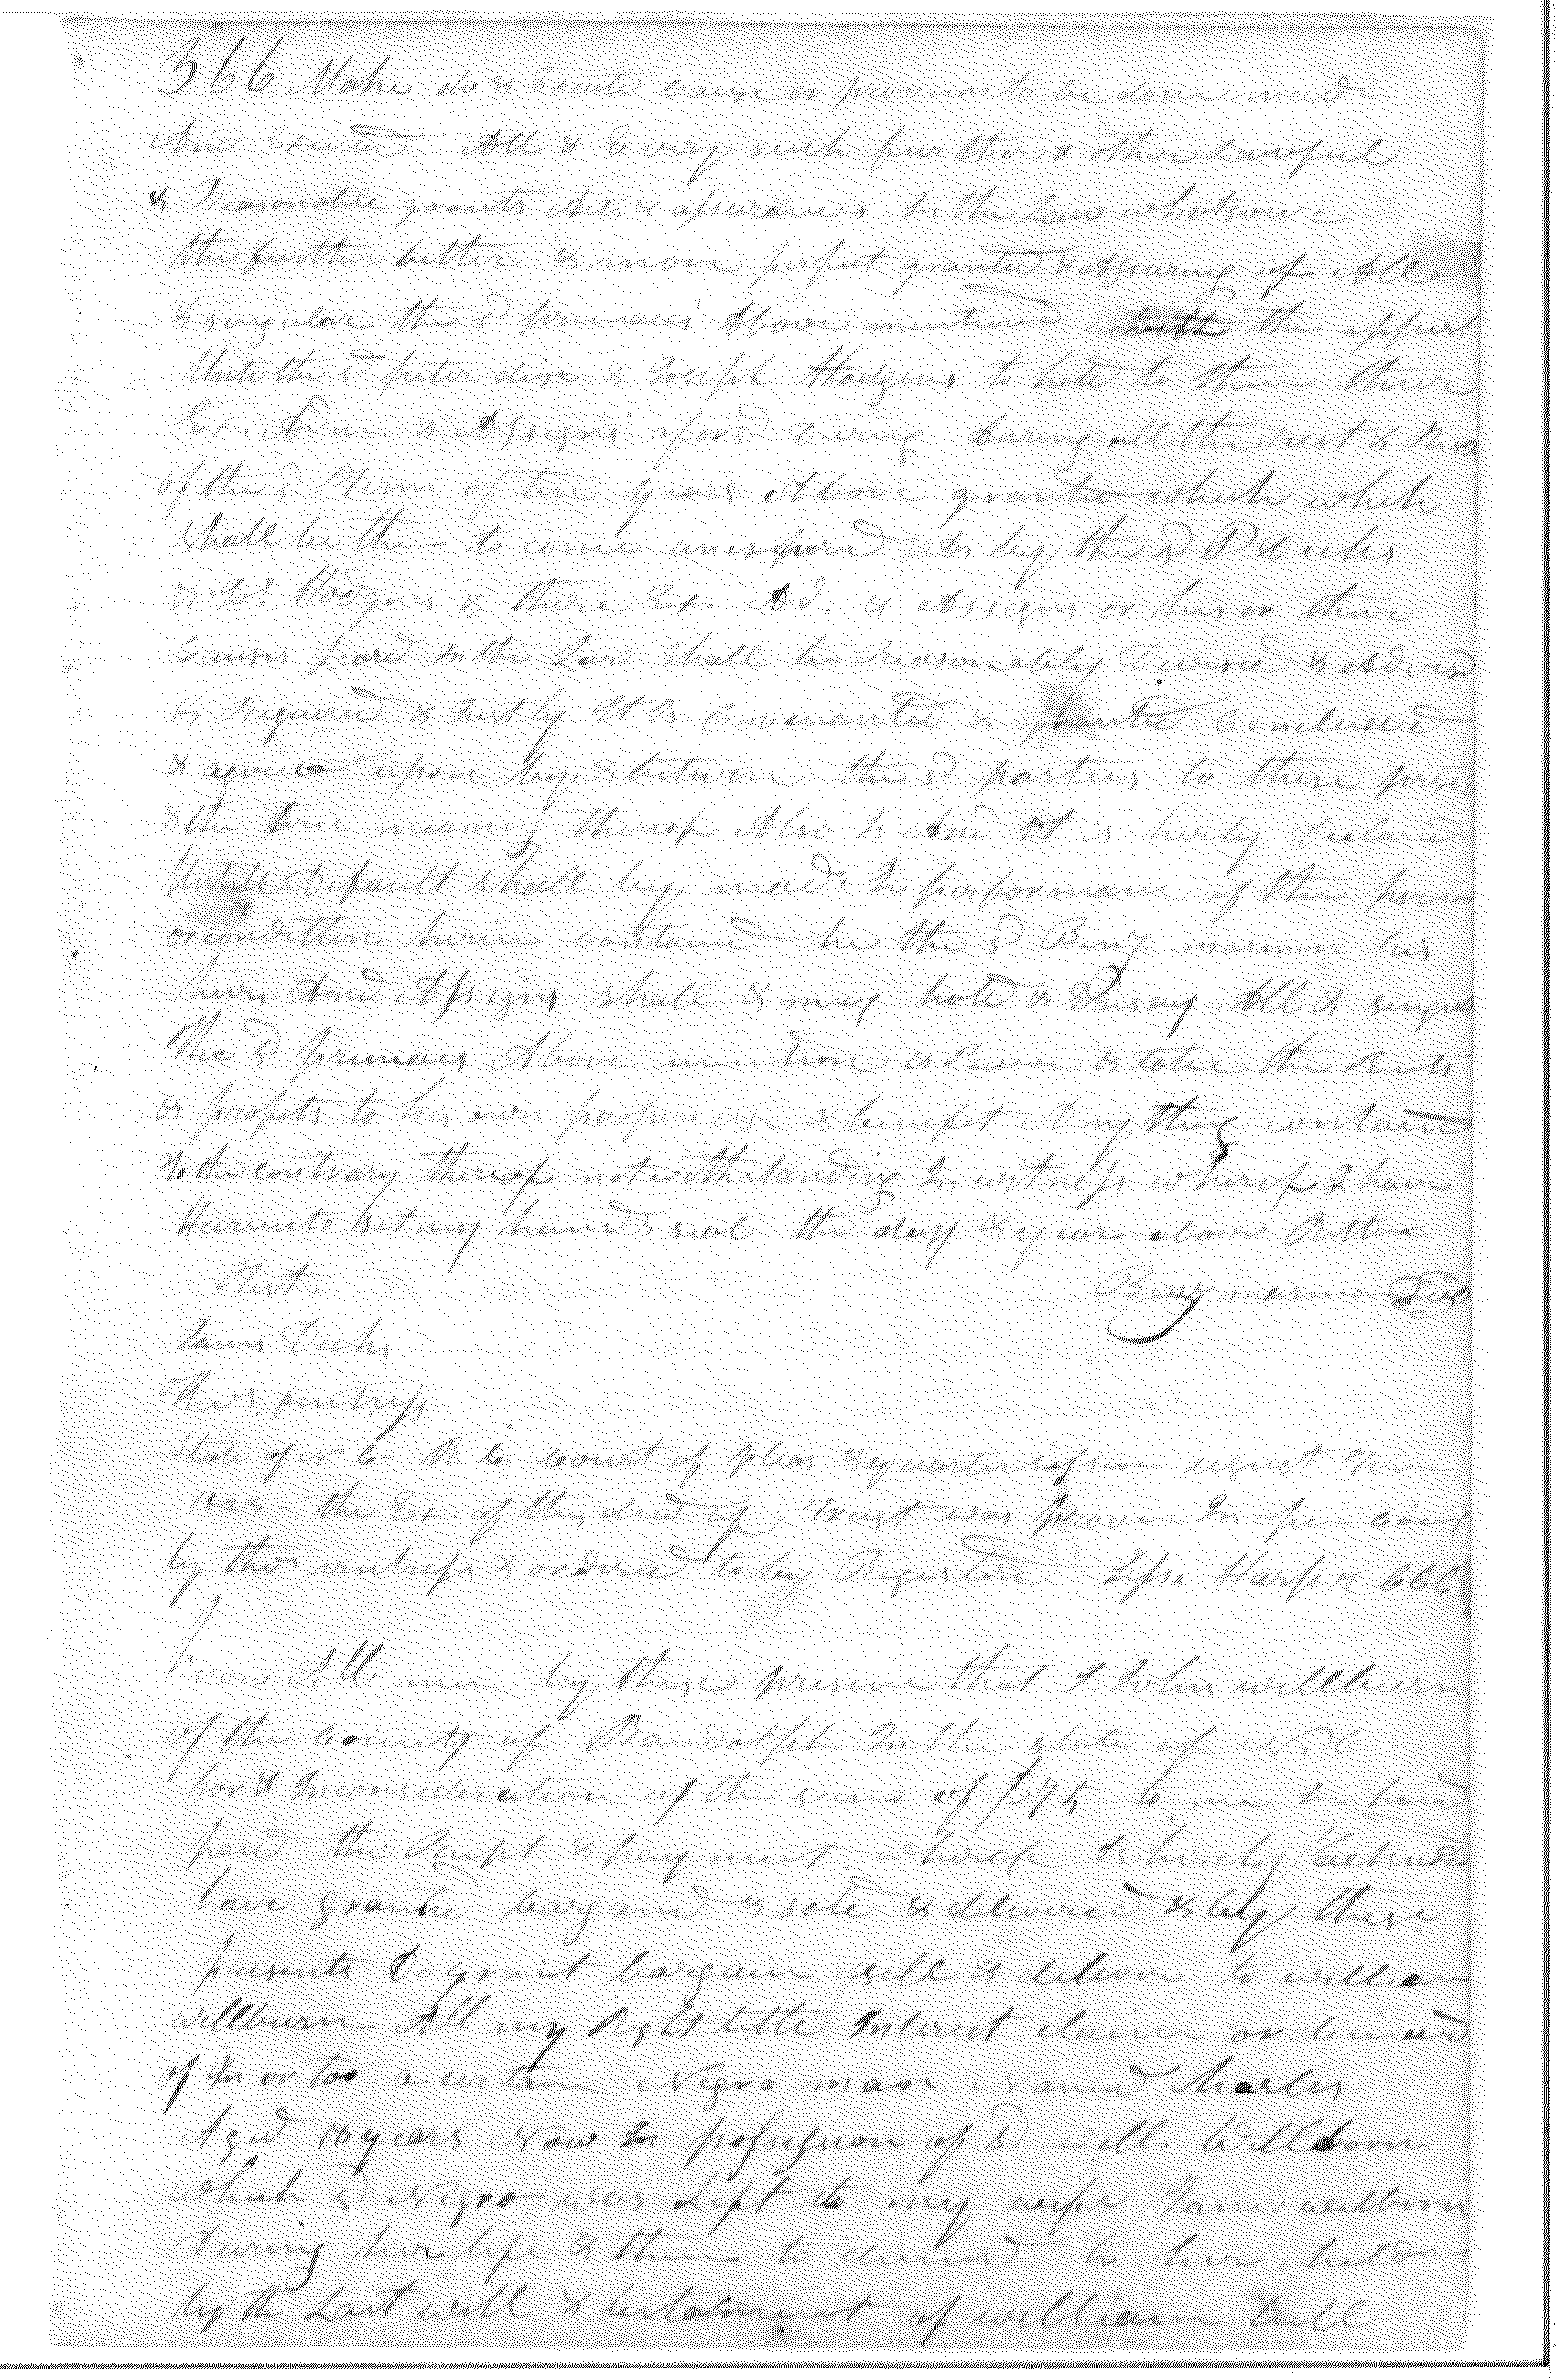 366 Make do & Excute cause or procure to be done made
And Excuted All & Every such further & other Lawful
& Reasonable grants Acts & assurances In the Law whatsoever
the further better & more perfect granted & Assuring of All
& singular the sd premises Above mentioned with the appurt
Unto the sd peter dix & Joseph Hodgens to hold to them their
Ex. Adm. & Assigns aforsd During during all the rest &
of the sd Term of ten years Above granted which which
shall be then to come unexpired as by the sd P
& Js Hodgens & there Ex. Ad. & Assigns or his or their
Learnd In the Law Shall be Reasonably Devised & Advisd
& Required & hereby It Is Covenanted & granted Concluded
& agreed upon by & between the sd parties to these pres
& the true meaning thereof Also Is And It is hereby declard
Untill Default shall by made In performance of the
or condition herein contained he the sd Benj marmon his
heirs And Assigns shall & may hold & Enjoy All & singular
the sd premises Above mention & Receive & take the Rents
& profits to his own proper use & benefit Any thing containd
to the contrary thereof not withstanding In witness whereof I have
Hereunto set my hand & seal the day & year above Ritten
Test. Benj marmon Seal
James Deeks
Thos pentress
State of N C R C court of pleas & quarter session
the Ex. of this deed of trust was proven In open court
by thos pentress & ordered to by Registerd Jesse Harper Clk

Know All men by these presence that I John willburn
of the County of Randolph In the state of N. C
for & In consideration of the sum of $75 to me In hand
paid the Receipt & payment whereof Is hereby
have granted bargaind & sold & delivered & by these
presents Do grant bargain sell & deliver to william
willburn All my Right title Interest claim or demand
of In or too a certain Negro man Named Charles
Aged years Now In possession of sd will. Willborn
which sd Negro was Left to my wife Jane wilborn
During her life & then to to her
by the Last will & testament of william bell